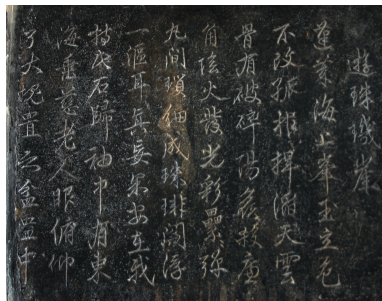 遊珠璣崖
蓬萊海上峯玉立色
不改孤根捍滔天雲
骨有破碎陽侯殺廉
角陰火發光彩纍纍彈
丸間瑣細成珠琲閻浮
一漚耳真妄果安在我
持此石歸袖中有東
海垂慈老人眼俯仰
了大塊置之盆盎中